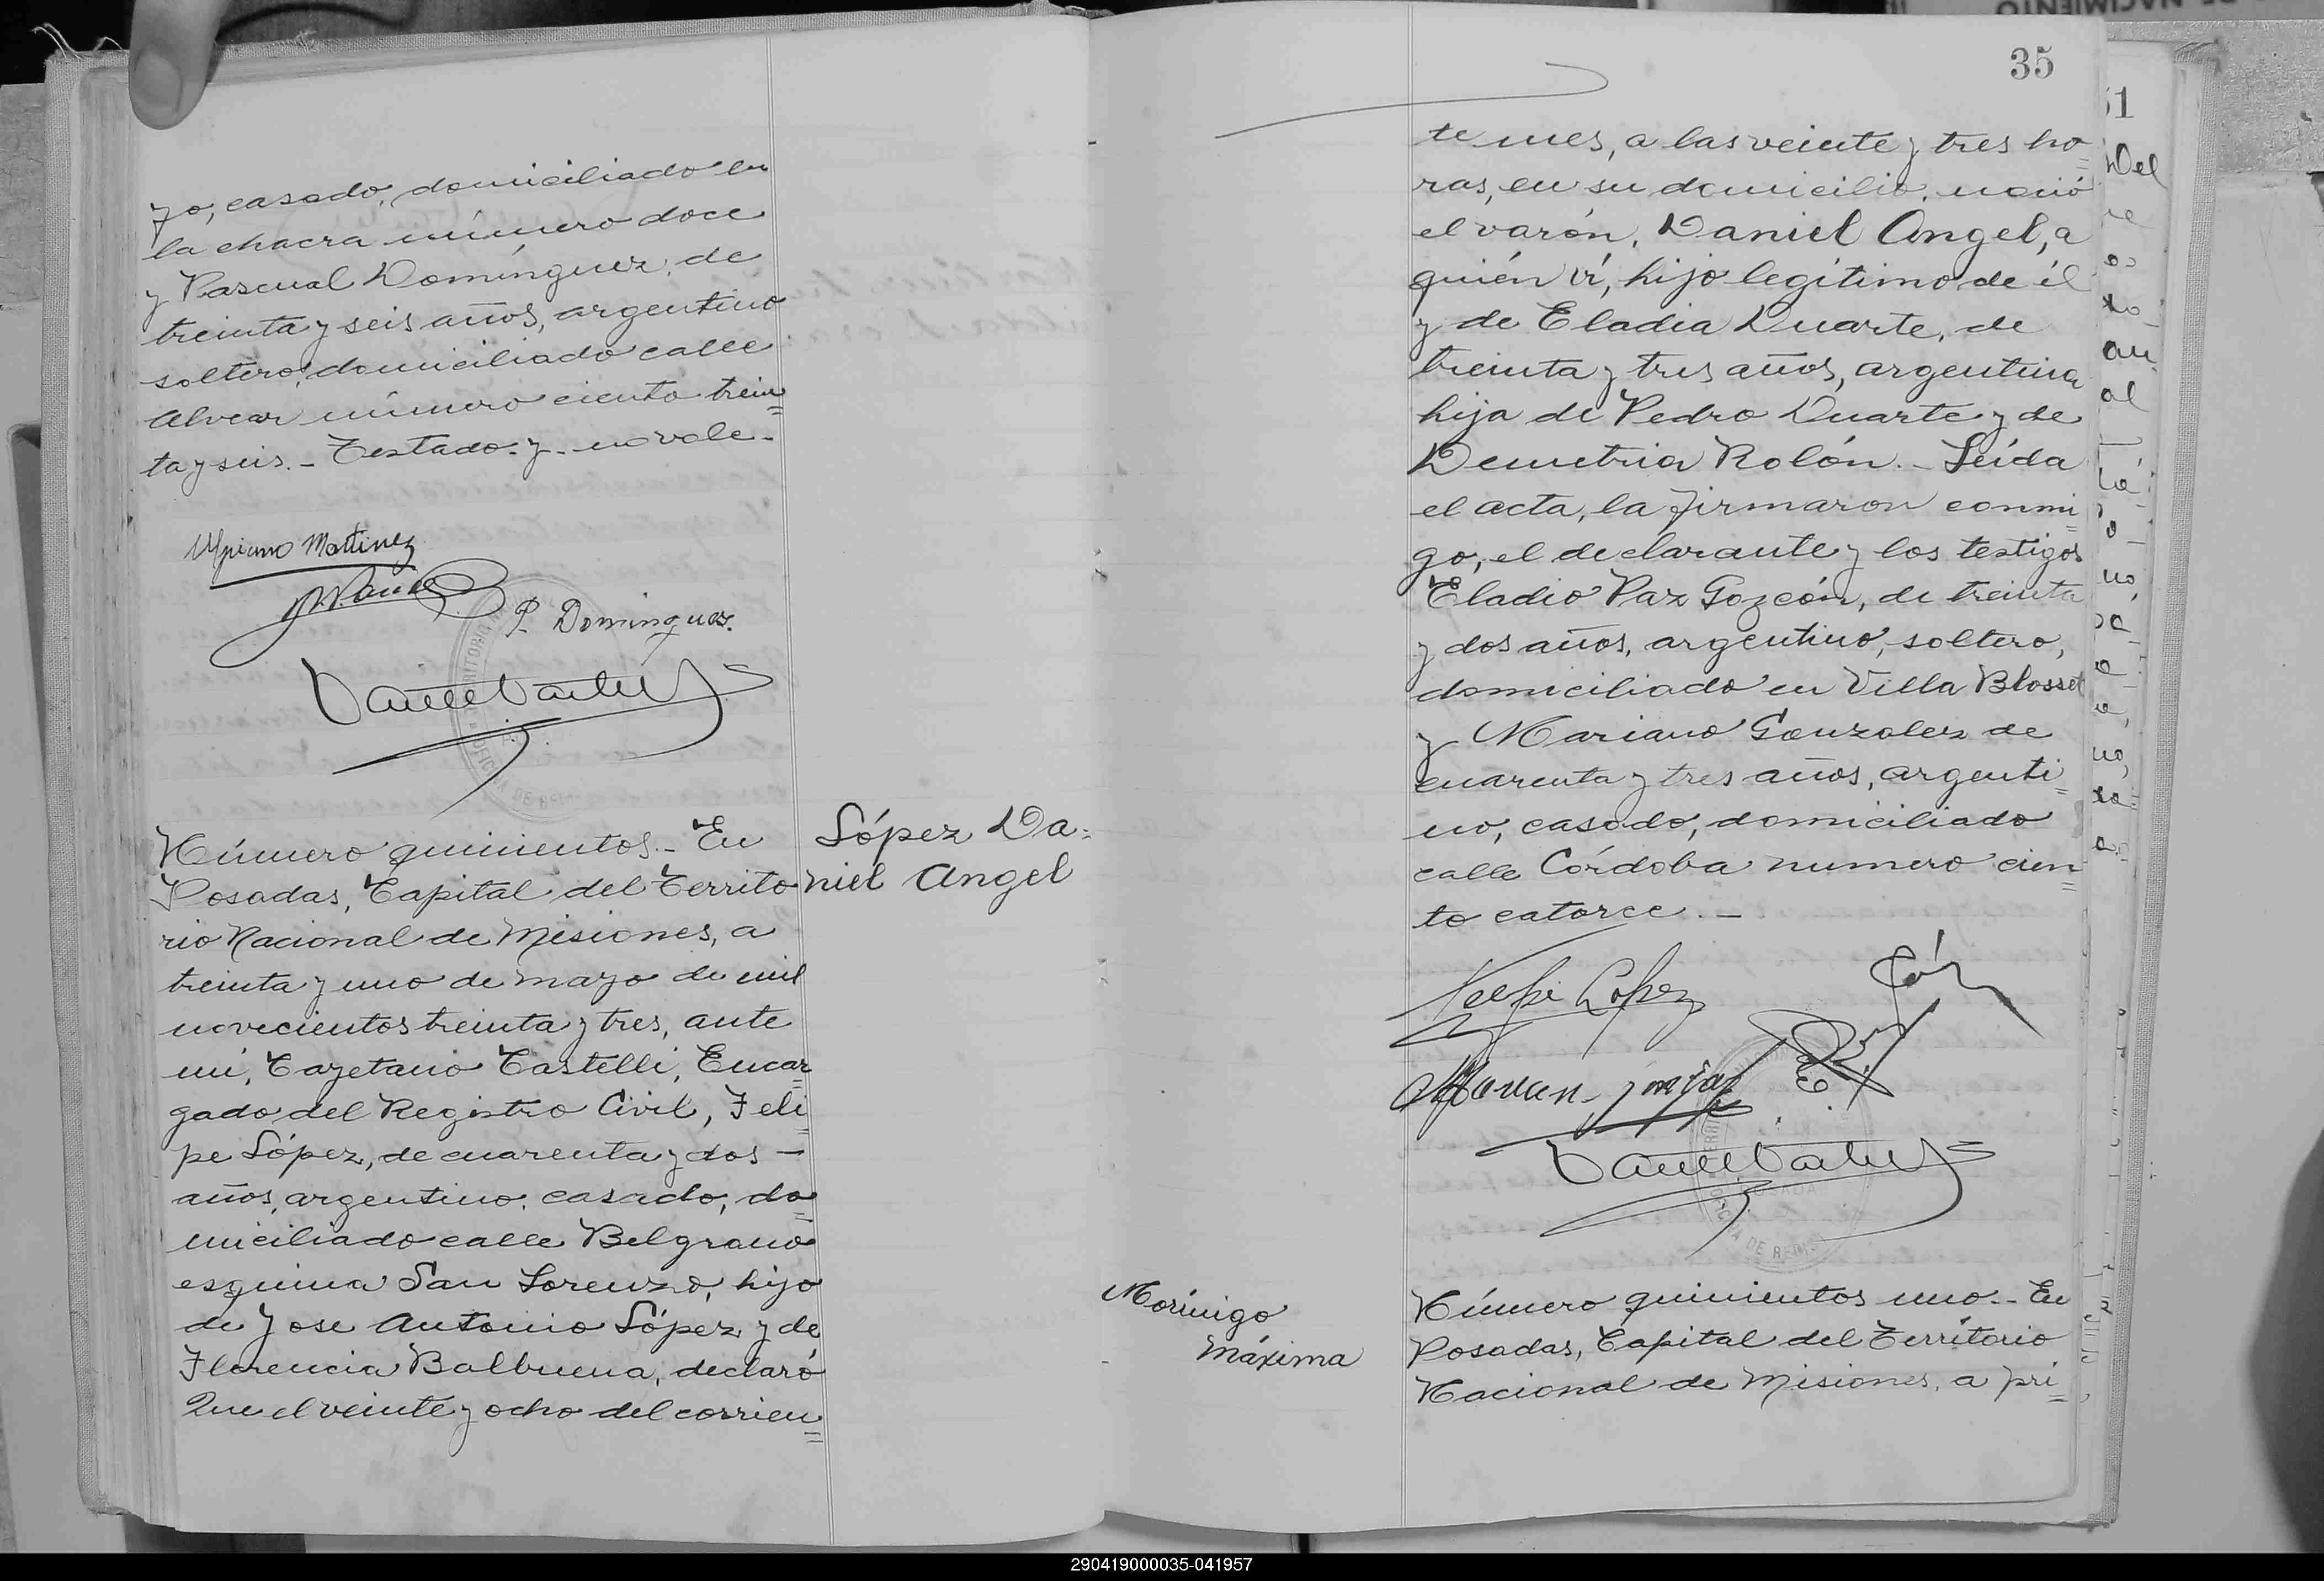 yo, casado, domiciliado en
la chacra número doce
y Pascual Domínguez, de
treinta y seis años, argentino
soltero, domiciliado calle
Alvear número ciento trein
ta y seis. - Testado - y - no vale -
Ulpiano Martinez
P. Dominguez.
Número quinientos. - En
Posadas, Capital del Territo
rio Nacional de Misiones, a
treinta y uno de mayo de mil
novecientos treinta y tres, ante
mí, Cayetano Castelli, Encar
gado del Registro Civil, Feli
pe López, de cuarenta y dos -
años, argentino, casado, do
miciliado calle Belgrano
esquina San Lorenzo, hijo
de Jose Antonio López y de
Florencia Balbuena, declaró
Que el veinte y ocho del corrien
López Da=
niel Angel
35
te mes, a las veinte y tres ho
ras, en su domicilio, nació
el varón, Daniel Angel, a
quién ví, hijo legítimo de él
y de Eladia Duarte, de
treinta y tres años, argentina
hija de Pedro Duarte y de
Demetria Rolón. - Leída
el acta, la firmaron conmi
go, el declarante y los testigos
Eladio Paz Gozcón, de treinta
y dos años, argentino, soltero,
domiciliado en Villa Blosset
y Mariano Gonzalez de
cuarenta y tres años, argenti
no, casado, domiciliado
calle Córdoba numero cien
to catorce. -
Felipe López
Morínigo
Máxima
Número quinientos uno. - En
Posadas, Capital del Territorio
Nacional de Misiones, a pri
290419000035-041957